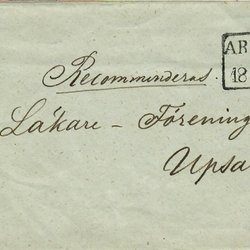 AR
18
Recommenderas.
Läkare-Förening
Upsa